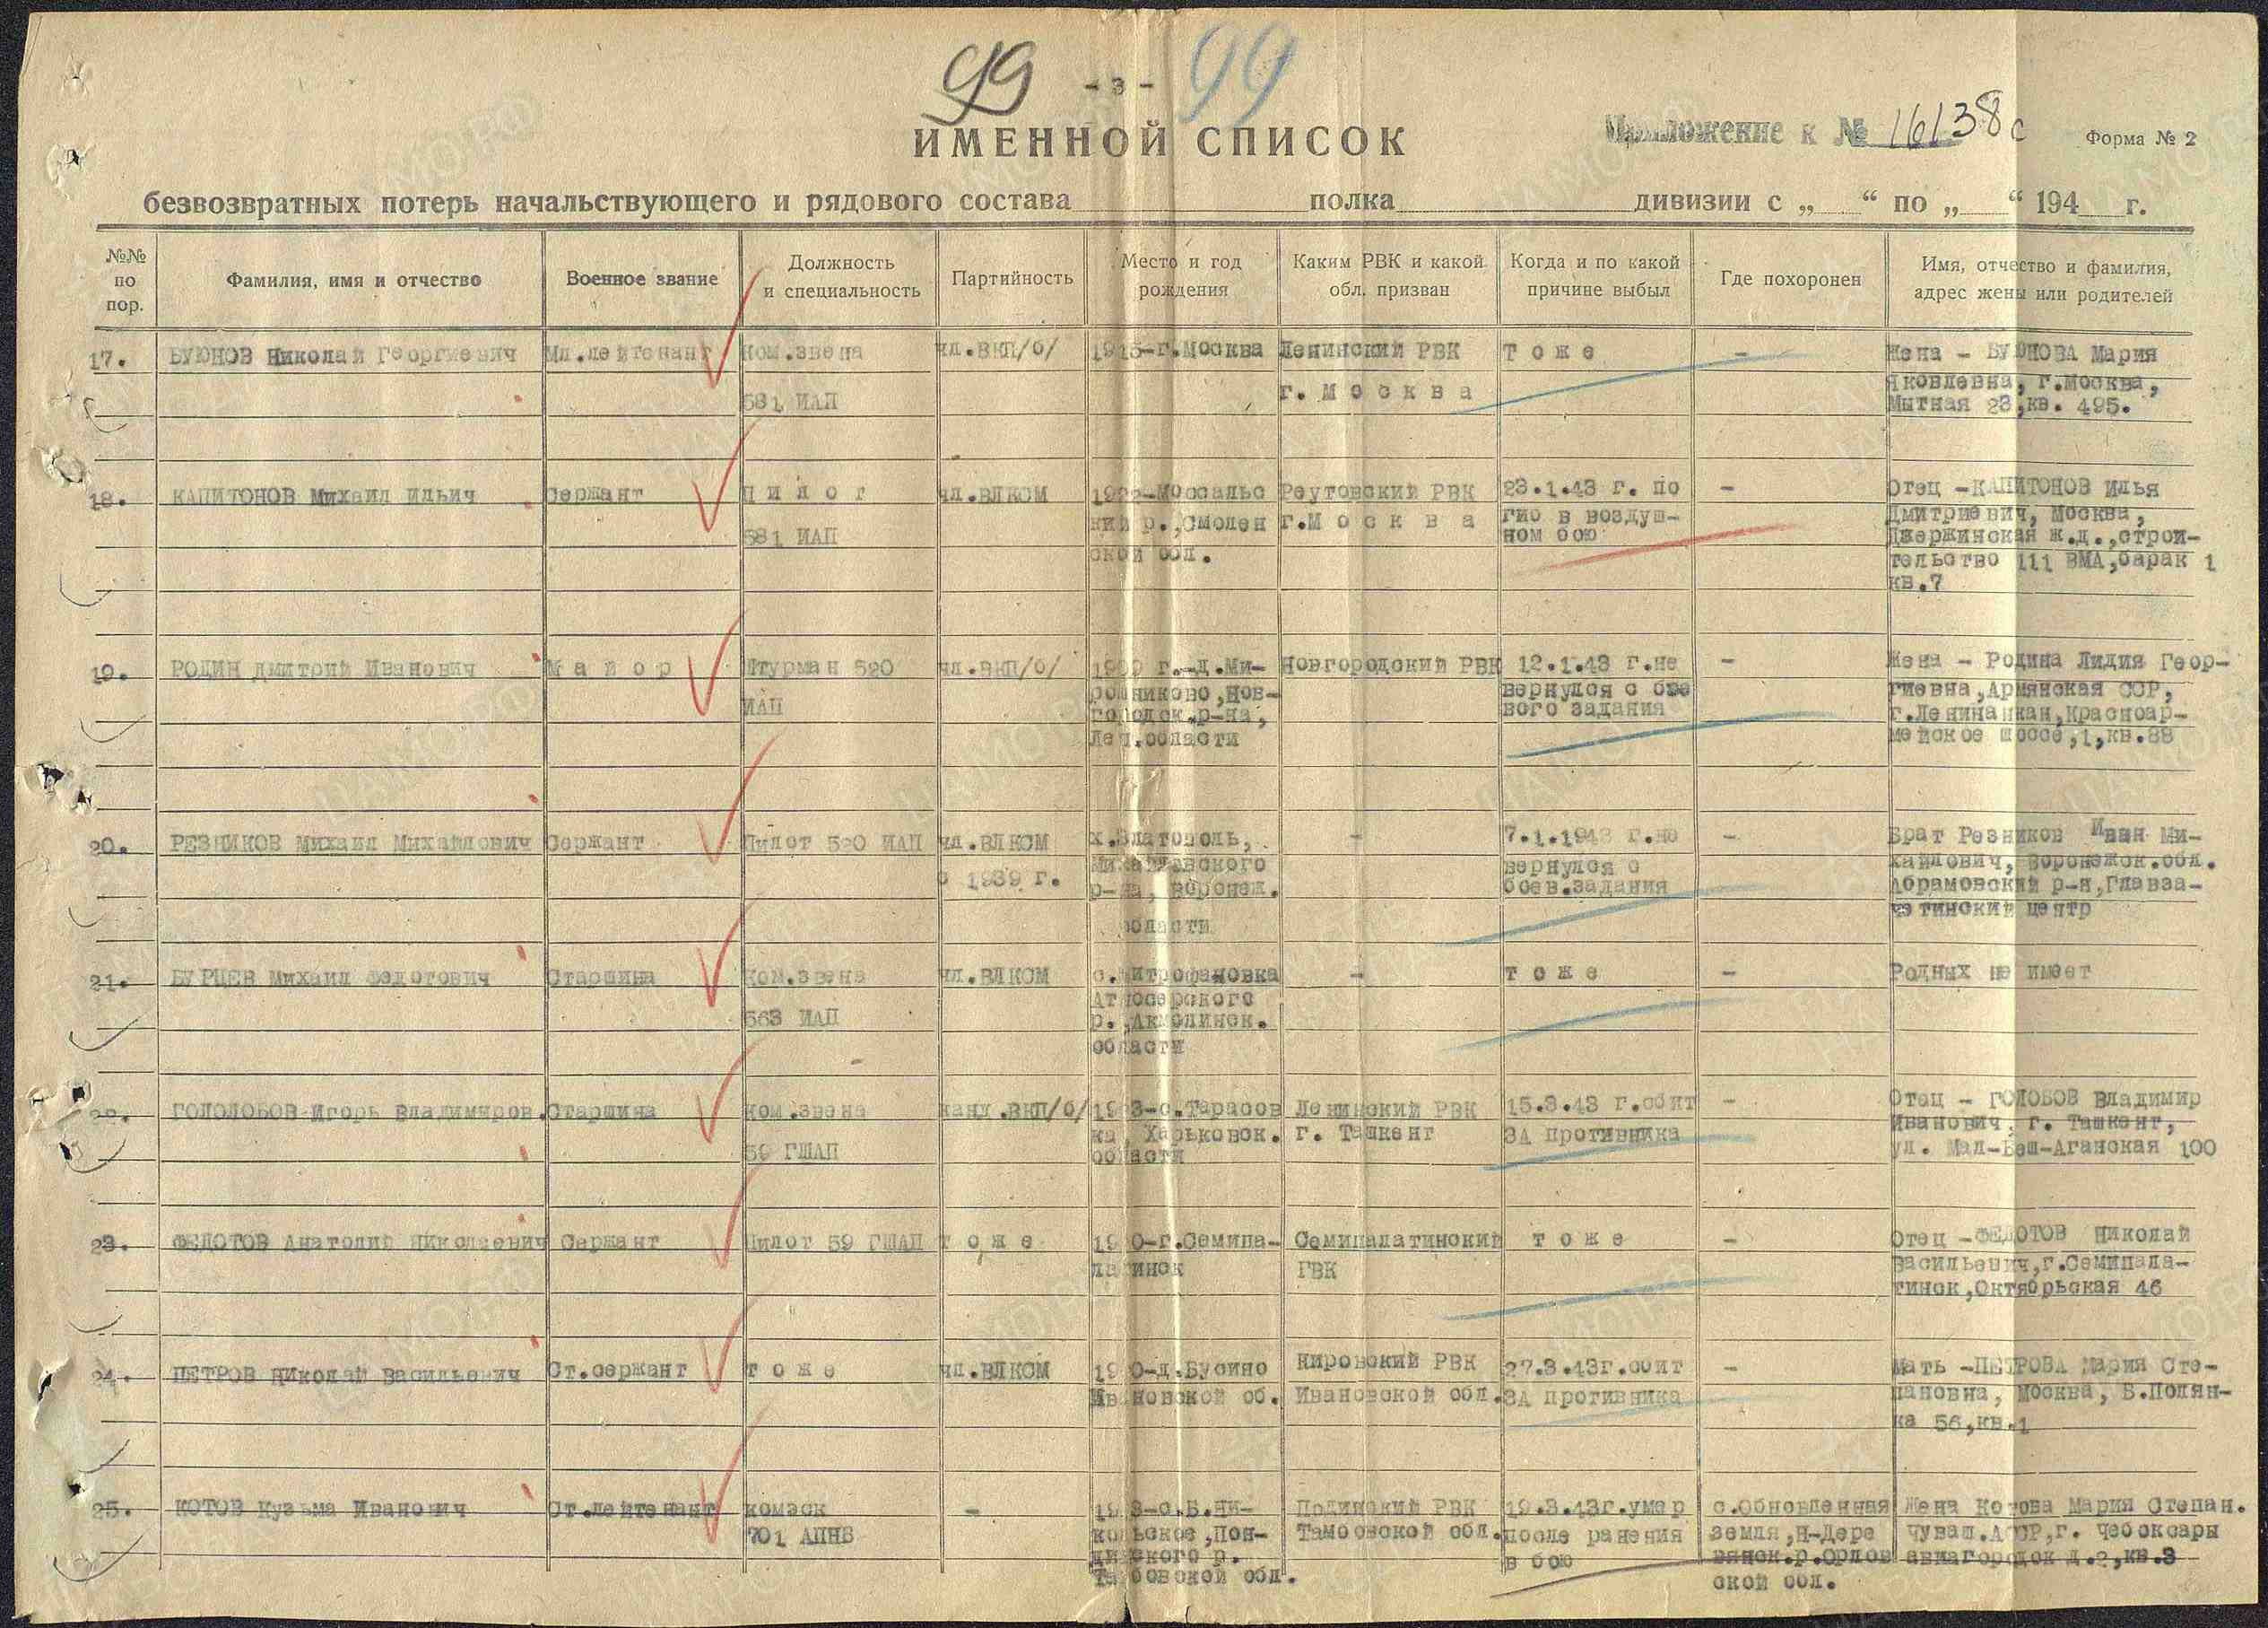 99 - 3 - 99
ИМЕННОЙ СПИСОК
Приложение к № 16138с
Форма № 2
безвозвратных потерь начальствующего и рядового состава полка дивизии с „ “ по „ “ 194 г.
№№ по пор.
Фамилия, имя и отчество
Военное звание
Должность и специальность
Партийность
Место и год рождения
Каким РВК и какой обл. призван
Когда и по какой причине выбыл
Где похоронен
Имя, отчество и фамилия, адрес жены или родителей
17. БУЮНОВ Николай Георгиевич Мл.лейтенант Ком.звена чл.ВКП/б/ г.Москва Ленинский РВК т о ж е - Жена - БУЮНОВА Мария
581 ИАП г. М о с к в а Яковлевна, г.Москва,
Мытная 23,кв. 495.
18. КАПИТОНОВ Михаил Ильич Сержант П и л о т чл.ВЛКСМ Моссальс Реутовский РВК 23.1.43 г. по - Отец -КАПИТОНОВ Илья
581 ИАП кий р.,Смолен г.М о с к в а гиб в воздуш- Дмитриевич, Москва,
ской обл. ном бою Джержинская ж.д.,строи-
тельство 111 ВМА,барак 1
кв.7
19. РОДИН Дмитрий Иванович М а й о р Штурман 520 чл.ВКП/б/ г.-д.Ми- Новгородский РВК 12.1.43 г.не - Жена - Родина Лидия Геор-
ИАП ронниково,Нов- вернулся с бое гиевна,Армянская ССР,
городск.р-на, вого задания г.Ленинанкан,Красноар-
Лен.области мейское шоссе,1,кв.88
20. РЕЗНИКОВ Михаил Михайлович Сержант Пилот 520 ИАП чл.ВЛКСМ х.Златополь, - 7.1.1943 г.не - Брат Резников Иван Ми-
с 1939 г. Михайловского вернулся с хайлович, Воронежск.обл.
р-на, Воронеж. боев.задания Абрамовский р-н,Главза-
области четинский центр
21. БУРЦЕВ Михаил Федотович Старшина Ком.звена чл.ВЛКСМ с.Митрофановка - т о ж е - Родных не имеет
563 ИАП Атюсерского
р.,Акмолинск.
области
22. ГОЛОЛОБОВ Игорь Владимиров. Старшина Ком.звена канд.ВКП/б/ с.Тарасов Ленинский РВК 15.3.43 г.сбит - Отец - ГОЛОБОВ Владимир
59 ГШАП ка, Харьковск. г. Ташкент ЗА противника Иванович, г. Ташкент,
области ул. Мал-Беш-Аганская 100
23. ФЕДОТОВ Анатолий Николаевич Сержант Пилот 59 ГШАП т о ж е г.Семипа- Семипалатинский т о ж е - Отец -ФЕДОТОВ Николай
латинск ГВК Васильевич,г.Семипала-
тинск,Октябрьская 46
24. ПЕТРОВ Николай Васильевич Ст.сержант т о ж е чл.ВЛКСМ д.Бусино Кировский РВК 27.3.43г.сбит - Мать -ПЕТРОВА Мария Сте-
Ивановской об. Ивановской обл. ЗА противника пановна, Москва, Б.Полян-
ка 56,кв.1
25. КОТОВ Кузьма Иванович Ст.лейтенант комэск - с.Б.Ни- Подинский РВК 19.3.43г.умер с.Обновленная Жена Котова Мария Степан.
701 АПНБ кольское,Пон- Тамбовской обл. после ранения земля,Н-Дере Чуваш.АССР,г. Чебоксары
динского р. в бою вянск.р.Орлов авиагородок д.2,кв.3
Тамбовской обл. ской обл.